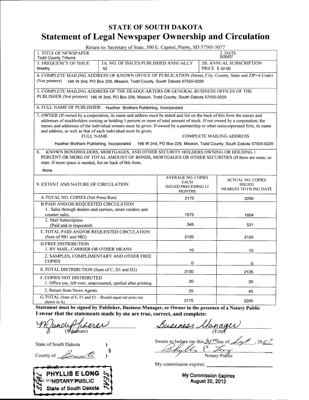 STATE OF SOUTH DAKOTA
Statement of Legal Newspaper Ownership and Circulation
Return to: Secretary of State, 500 E. Capitol, Pierre, SD 57501-5077
1. TITLE OF NEWSPAPER
Todd County Tribune
2. DATE
3. FREQUENCY OF ISSUE
Weekly
3A. NO. OF ISSUES PUBLISHED ANNUALLY
52
3B. ANNUAL SUBSCRIPTION
PRICE $ 42.00
4. COMPLETE MAILING ADDRESS OF KNOWN OFFICE OF PUBLICATION (Street, City, County, State and ZIP+4 Code)
(Not printers) 166 W 2nd, PO Box 229, Mission, Todd County, South Dakota 57555-0229
5. COMPLETE MAILING ADDRESS OF THE HEADQUARTERS OR GENERAL BUSINESS OFFICES OF THE
PUBLISHER (Not printers) 166 W 2nd, PO Box 229, Mission, Todd County, South Dakota 57555-0229
6. FULL NAME OF PUBLISHER: Huether Brothers Publishing, Incorporated
7. OWNER (If owned by a corporation, its name and address must be stated and list on the back of this form the names and
addresses of stockholders owning or holding 1 percent or more of total amount of stock. If not owned by a corporation, the
names and addresses of the individual owners must be given. If owned by a partnership or other unincorporated firm, its name
and address, as well as that of each individual must be given.
FULL NAME COMPLETE MAILING ADDRESS
Huether Brothers Publishing, Incorporated 166 W 2nd, PO Box 229, Mission, Todd County, South Dakota 57555-0229
8. KNOWN BONDHOLDERS, MORTGAGES, AND OTHER SECURITY HOLDERS OWNING OR HOLDING 1
PERCENT OR MORE OF TOTAL AMOUNT OF BONDS, MORTGAGES OR OTHER SECURITIES (If there are none, so
state. If more space is needed, list on back of this form.
None
9. EXTENT AND NATURE OF CIRCULATION
AVERAGE NO. COPIES
EACH
ISSUED PRECEDING 12
MONTHS
ACTUAL NO. COPIES
ISSUED
NEAREST TO FILING DATE
A. TOTAL NO. COPIES (Net Press Run) 2175 2200
B. PAID AND/OR REQUESTED CIRCULATION
1. Sales through dealers and carriers, street vendors and
counter sales. 1575 1604
2. Mail Subscription
(Paid and or requested) 545 521
C. TOTAL PAID AND/OR REQUESTED CIRCULATION
(Sum of 9B1 and 9B2) 2120 2125
D. FREE DISTRIBUTION
1. BY MAIL, CARRIER OR OTHER MEANS 10 10
2. SAMPLES, COMPLIMENTARY AND OTHER FREE
COPIES 0 0
E. TOTAL DISTRIBUTION (Sum of C, D1 and D2) 2130 2135
F. COPIES NOT DISTRIBUTED
1. Office use, left over, unaccounted, spoiled after printing 20 20
2. Return from News Agents 25 45
G. TOTAL (Sum of E, F1 and F2 - Should equal net press run
shown in A) 2175 2200
Statement must be signed by Publisher, Business Manager, or Owner in the presence of a Notary Public
I swear that the statements made by me are true, correct, and complete:
Business Manager
(Signature) (Title)
State of South Dakota )
Sworn to before me this
County of
Phyllis E. Long
Notary Public
My commission expires:
PHYLLIS E LONG
NOTARY PUBLIC
State of South Dakota
SEAL
My Commission Expires
August 30, 2012